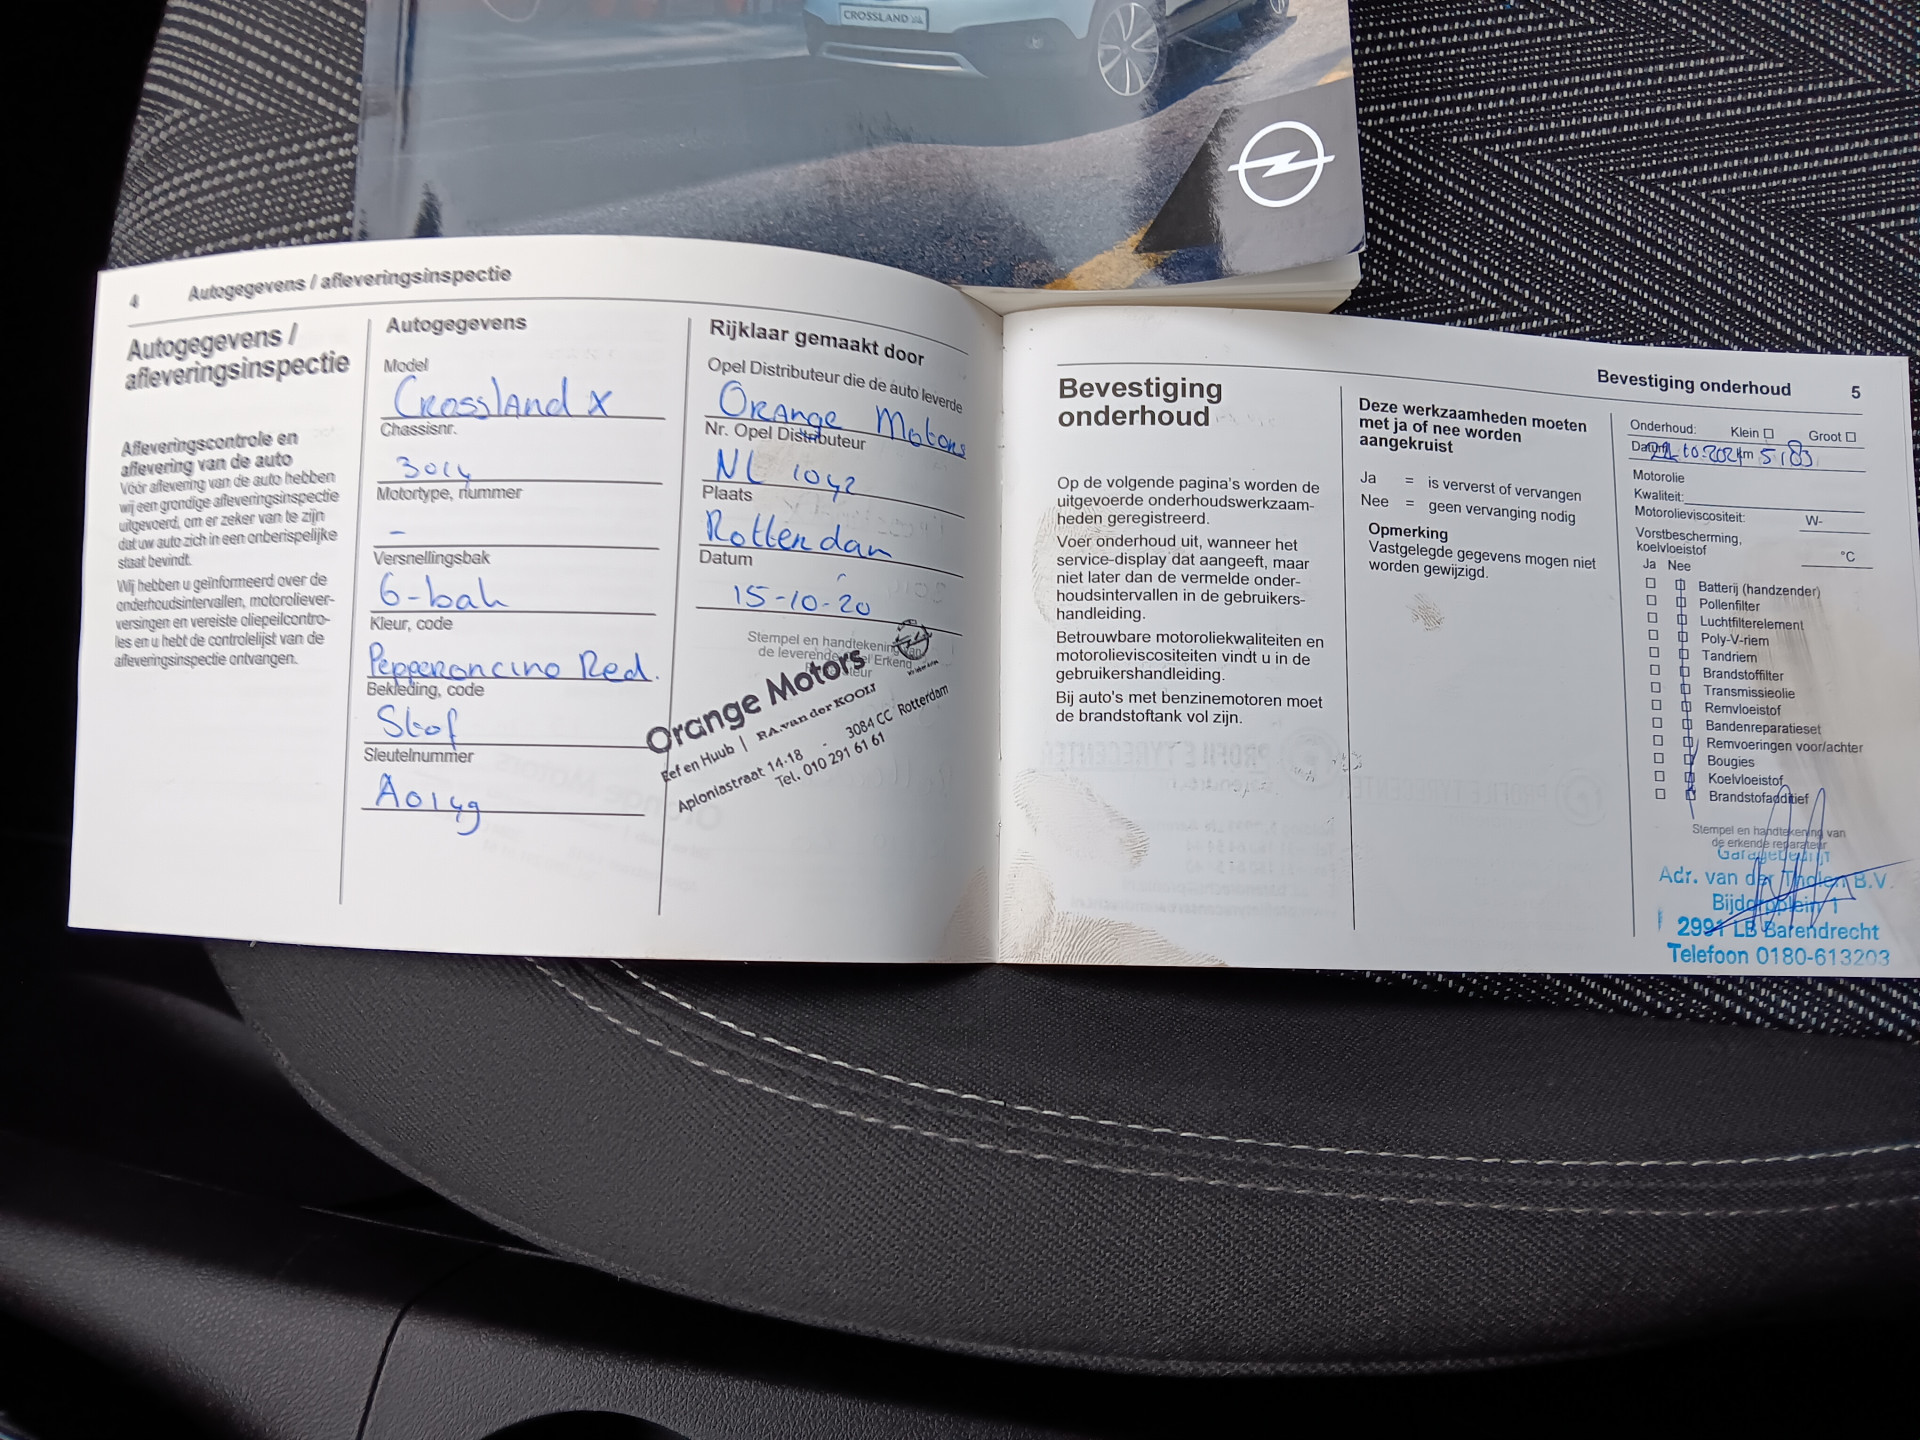 CROSSLAND
4 Autogegevens / afleveringsinspectie
Autogegevens /
afleveringsinspectie
Afleveringscontrole en
aflevering van de auto
Vóór aflevering van de auto hebben
wij een grondige afleveringsinspectie
uitgevoerd, om er zeker van te zijn
dat uw auto zich in een onberispelijke
staat bevindt.
Wij hebben u geïnformeerd over de
onderhoudsintervallen, motoroliever-
versingen en vereiste oliepeilcontro-
les en u hebt de controlelijst van de
afleveringsinspectie ontvangen.
Autogegevens
Model
Crossland X
Chassisnr.
3014
Motortype, nummer
-
Versnellingsbak
6-bak
Kleur, code
Pepperoncino Red.
Bekleding, code
Stof
Sleutelnummer
A0149
Rijklaar gemaakt door
Opel Distributeur die de auto leverde
Orange Motors
Nr. Opel Distributeur
NL 1042
Plaats
Rotterdam
Datum
15-10-20
Stempel en handtekening van
de leverende Erkend
Orange Motors
Eef en Huub | R.A. van der KOOIJ
Aploniastraat 14-18 - 3084 CC Rotterdam
Tel. 010 291 61 61
Bevestiging onderhoud 5
Bevestiging
onderhoud
Op de volgende pagina's worden de
uitgevoerde onderhoudswerkzaam-
heden geregistreerd.
Voer onderhoud uit, wanneer het
service-display dat aangeeft, maar
niet later dan de vermelde onder-
houdsintervallen in de gebruikers-
handleiding.
Betrouwbare motoroliekwaliteiten en
motorolieviscositeiten vindt u in de
gebruikershandleiding.
Bij auto's met benzinemotoren moet
de brandstoftank vol zijn.
Deze werkzaamheden moeten
met ja of nee worden
aangekruist
Ja = is ververst of vervangen
Nee = geen vervanging nodig
Opmerking
Vastgelegde gegevens mogen niet
worden gewijzigd.
Onderhoud: Klein Groot
Datum 10.2021 km
Motorolie
Kwaliteit:
Motorolieviscositeit: W-
Vorstbescherming,
koelvloeistof °C
Ja Nee
Batterij (handzender)
Pollenfilter
Luchtfilterelement
Poly-V-riem
Tandriem
Brandstoffilter
Transmissieolie
Remvloeistof
Bandenreparatieset
Remvoeringen voor/achter
Bougies
Koelvloeistof
Brandstofadditief
Stempel en handtekening van
de erkende reparateur
Garagebedrijf
Adr. van der Tholen B.V.
Bijdorpplein 1
2991 LB Barendrecht
Telefoon 0180-613203